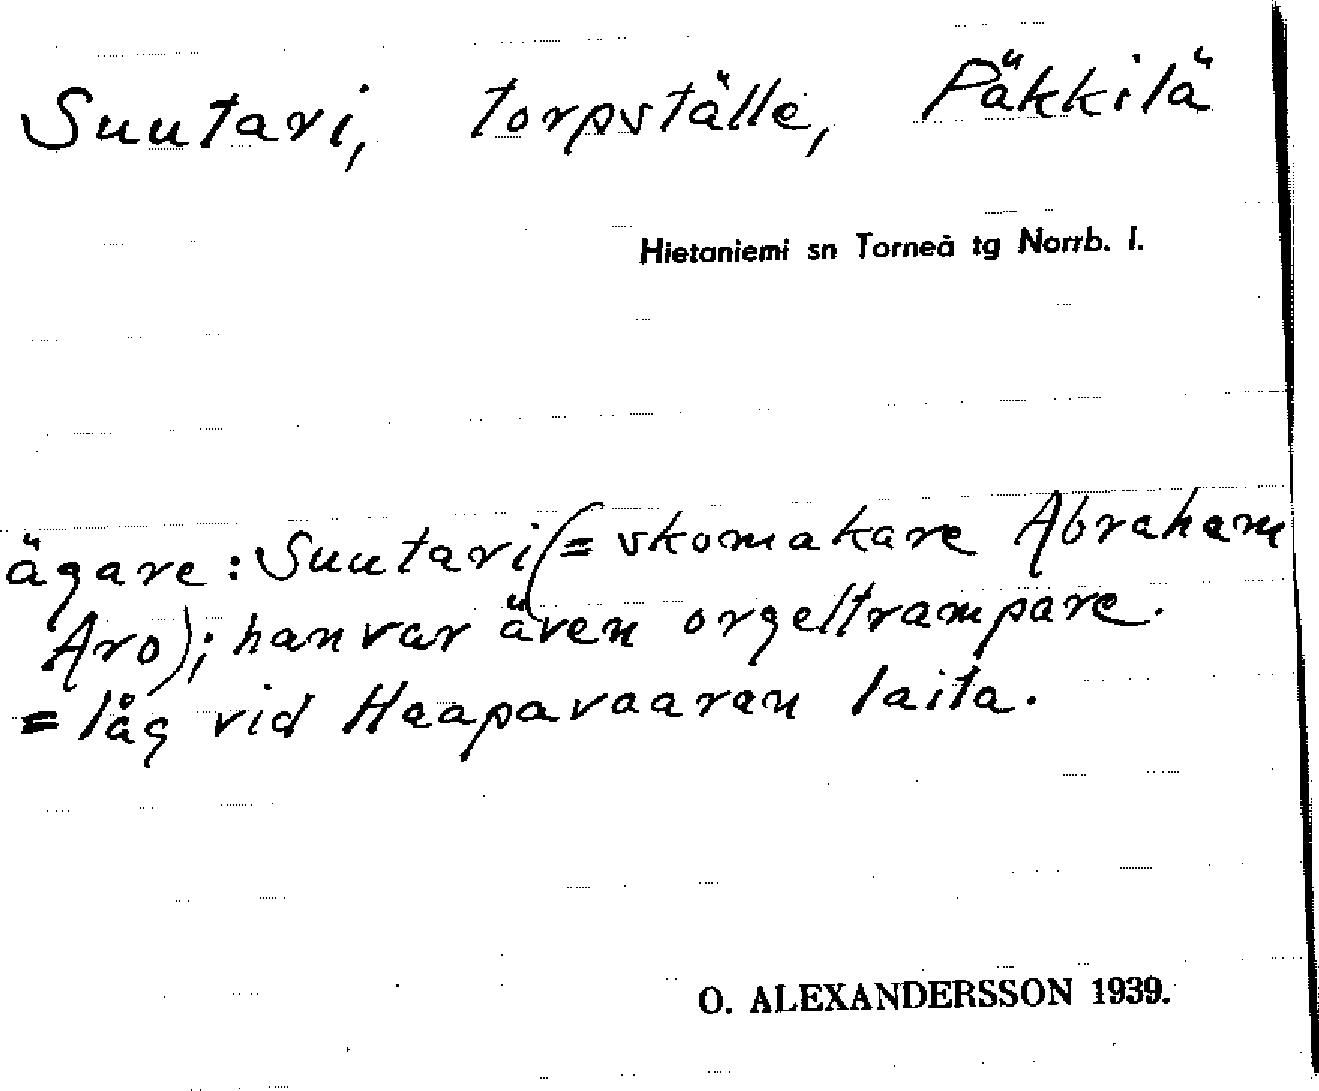 Suutari, torpställe, Päkkilä
Hietaniemi sn Torneå tg Norrb. l.
ägare: Suutari (= skomakare Abraham
Aro); han var även orgeltrampare.
= låg vid Haapavaaran laita.
O. ALEXANDERSSON 1939.